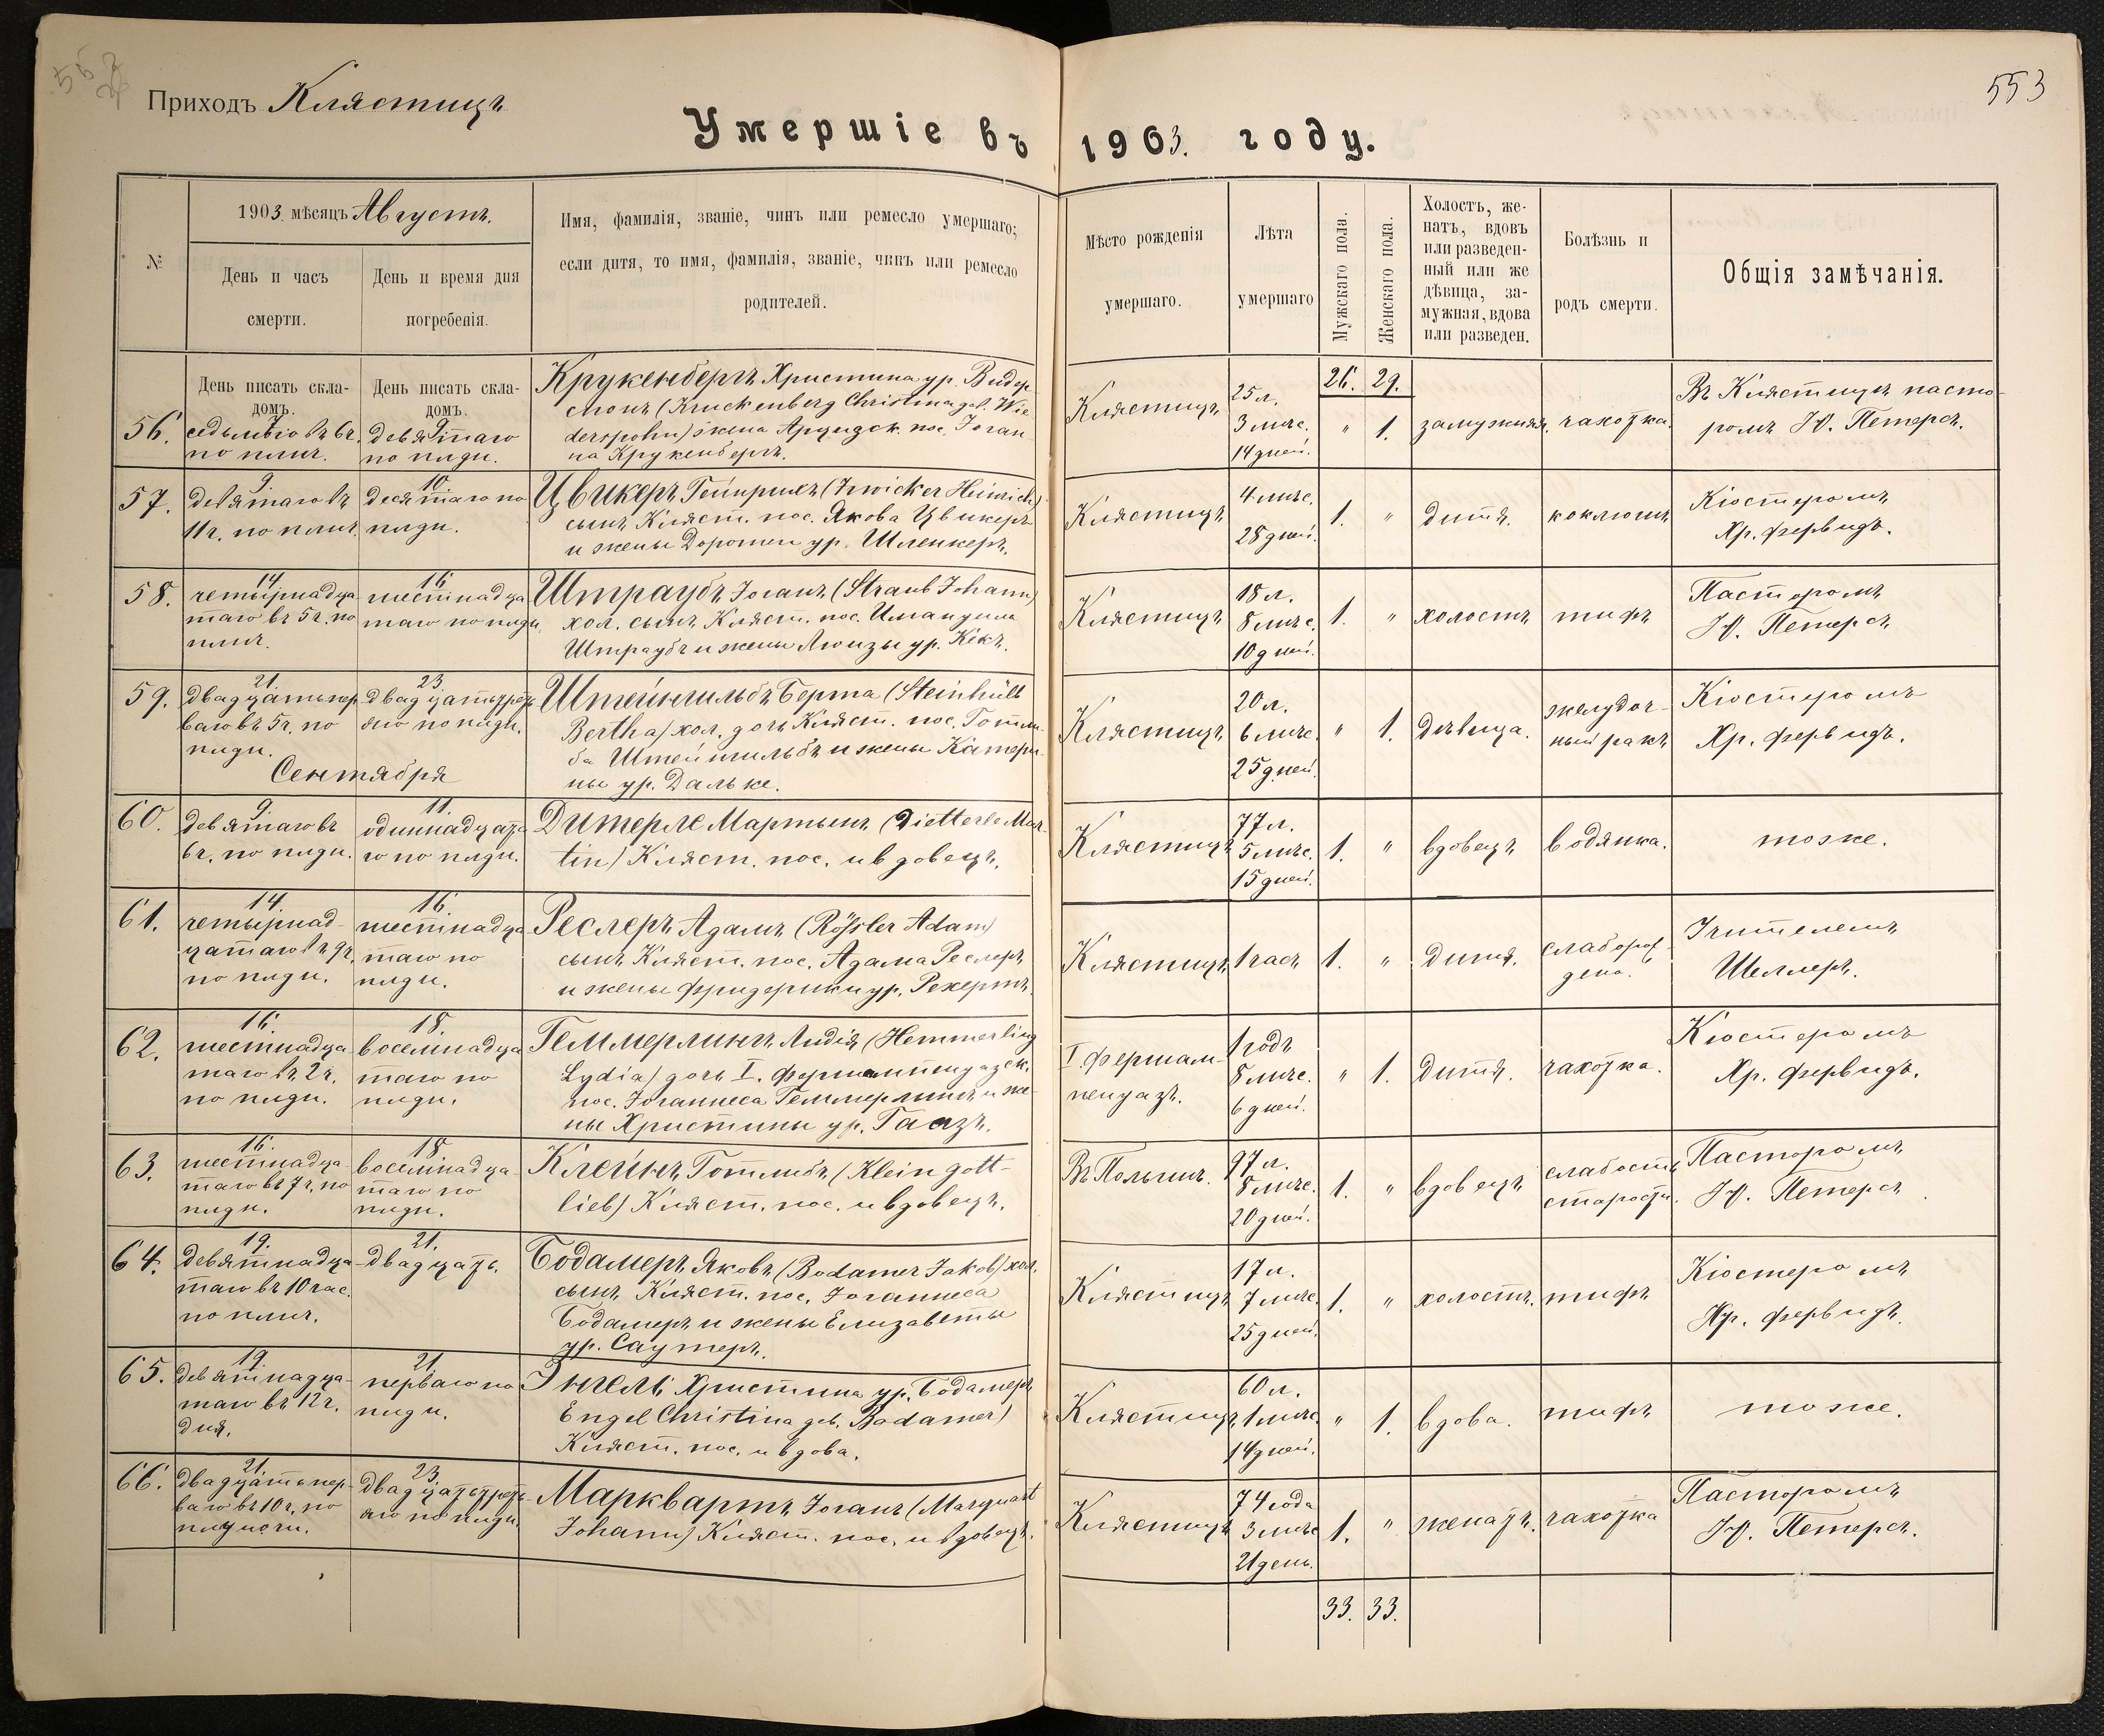 553
Приходъ Клястицъ
Умершіе въ 1903. году.
№
1903. мѣсяцъ Августъ.
День и часъ
смерти.
День и время дня
погребенія.
Имя, фамилія, званіе, чинъ или ремесло умершаго;
если дитя, то имя, фамилія, званіе, чинъ или ремесло
родителей.
Мѣсто рожденія
умершаго.
Лѣта
умершаго
Мужскаго пола.
Женскаго пола.
Холостъ, же-
натъ, вдовъ
или разведен-
ный или же
дѣвица, за-
мужняя, вдова
или разведен.
Болѣзнь и
родъ смерти.
Общія замѣчанія.
День писать скла-
домъ.
День писать скла-
домъ.
26. 29.
56.
7.
седьмаго въ 6ч.
по плнч.
9.
девятаго
по плдн.
Крукенбергъ Христина ур. Видер-
спонъ (Kruckenberg Christina geb. Wie-
derspohn) жена Арцизск. пос. Іоган-
на Крукенбергъ.
Клястицъ
25 л.
3 мѣс.
14 дней.
" 1.
замужняя.
чахотка.
Въ Клястицѣ пасто-
ромъ Ю. Петерсъ.
57.
9.
девятаго въ
11ч. по плнч.
10.
десятаго по
плдн.
Цвикеръ Гейнрихъ (Zwicker Heinrich)
сынъ Кляст. пос. Якова Цвикеръ
и жены Доротеи ур. Шленкеръ.
Клястицъ
4 мѣс.
28 дней.
1. "
дитя.
коклюшъ
Кюстеромъ
Хр. Фервидъ.
58.
14.
четырнадца
таго въ 5ч. по
плнч.
16.
шестнадца
таго по плдн.
Штраубъ Іоганъ (Straub Johann)
хол. сынъ Кляст. пос. Имануила
Штраубъ и жены Люизы ур. Кекъ.
Клястицъ
18 л.
8 мѣс.
10 дней.
1. "
холостъ
тифъ
Пасторомъ
Ю. Петерсъ
59.
21.
двадцатьпер
ваго въ 5ч. по
плдн.
23.
двадцатьтреть
яго по плдн.
Штейнгильбъ Берта (Steinhülb
Bertha) хол. дочь Кляст. пос. Готли-
ба Штейнгильбъ и жены Катери-
ны ур. Дальке.
Клястицъ
20 л.
6 мѣс.
25 дней.
" 1.
дѣвица.
желудоч-
ный ракъ
Кюстеромъ
Хр. Фервидъ.
Сентября
60.
9.
девятаго въ
6ч. по плдн.
11.
одиннадцата
го по плдн.
Дитерле Мартынъ (Dietterle Mar-
tin) Кляст. пос. и вдовецъ.
Клястицъ
77 л.
5 мѣс.
15 дней.
1. "
вдовецъ
водянка.
тоже.
61.
14.
четырнад-
цатаго въ 9ч.
по плдн.
16.
шестнадца
таго по
плдн.
Реслеръ Адамъ (Rößler Adam)
сынъ Кляст. пос. Адама Реслеръ
и жены Фридерики ур. Рехертъ.
Клястицъ
1 часъ
1. "
дитя.
слаборож-
дено.
Учителемъ
Шеллеръ.
62.
16.
шестнадца
таго въ 2ч.
по плдн.
18.
восемнадца
таго по
плдн.
Геммерлингъ Лидія (Hemmerling
Lydia) дочь I. Фершампенуазск.
пос. Іоганнеса Геммерлингъ и же-
ны Христины ур. Гаазъ.
I. Фершам-
пенуазъ.
1 годъ
8 мѣс.
6 дней.
" 1.
дитя.
чахотка.
Кюстеромъ
Хр. Фервидъ.
63.
16.
шестнадца-
таго въ 7ч. по
плдн.
18.
восемнадца-
таго по
плдн.
Клейнъ Готлибъ (Klein Gott-
lieb) Кляст. пос. и вдовецъ.
Въ Польшѣ.
97 л.
8 мѣс.
20 дней.
1. "
вдовецъ
слабость
старости.
Пасторомъ
Ю. Петерсъ
64.
19.
девятнадца
таго въ 10 час.
по плнч.
21.
двадцать.
Бодамеръ Яковъ (Bodamer Jakob) хол.
сынъ Кляст. пос. Іоганнеса
Бодамеръ и жены Елизаветы
ур. Саутеръ.
Клястицъ
17 л.
7 мѣс.
25 дней.
1. "
холостъ.
тифъ
Кюстеромъ
Хр. Фервидъ.
65.
19.
девятнадца-
таго въ 12ч.
дня.
21.
перваго по
плдн.
Энгель Христина ур. Бодамеръ
Engel Christina geb. Bodamer)
Кляст. пос. и вдова.
Клястицъ
60 л.
1 мѣс.
14 дней.
" 1.
вдова.
тифъ
тоже.
66.
21.
двадцатьпер-
ваго въ 10ч. по
23.
двадцатьтреть-
яго по плдн.
Марквартъ Іоганъ (Marquart
Johann) Кляст. пос. и вдовецъ.
Клястицъ
74 года
3 мѣс.
21 день.
1. "
женатъ.
чахотка
Пасторомъ
Ю. Петерсъ.
33. 33.